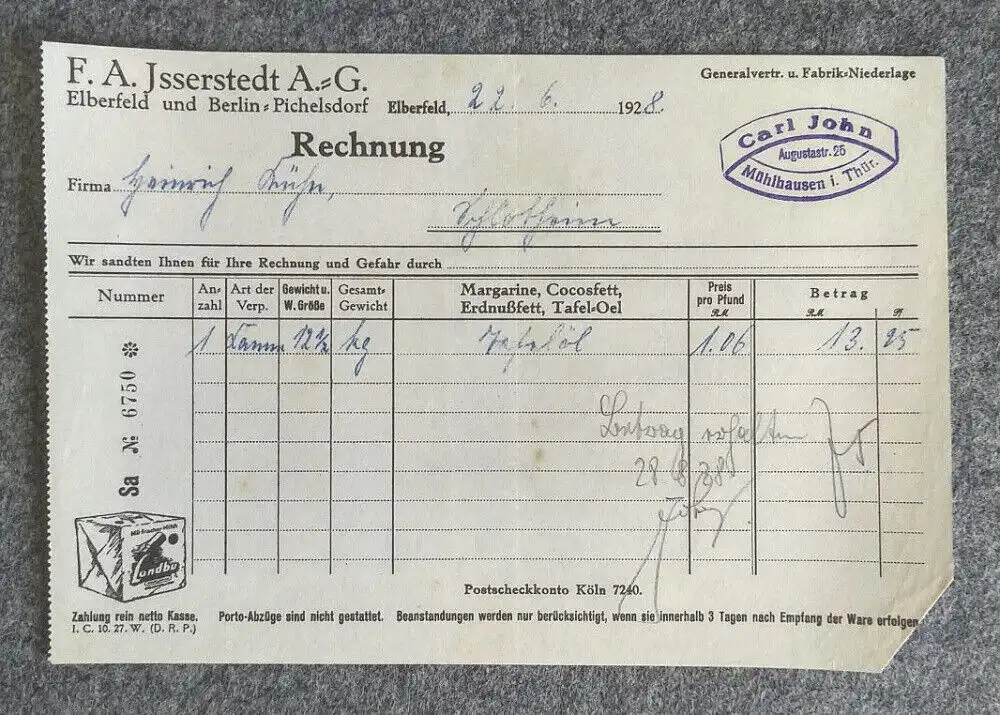 F. A. Jsserstedt A.=G.
Elberfeld und Berlin=Pichelsdorf
Elberfeld, 22. 6. 1928.
Generalvertr. u. Fabrik=Niederlage
Carl John
Augustastr. 25
Mühlhausen i. Thür.
Rechnung
Firma Heinrich Kühn,
Schlotheim
Wir sandten Ihnen für Ihre Rechnung und Gefahr durch
Nummer
An=
zahl
Art der
Verp.
Gewicht u.
W. Größe
Gesamt=
Gewicht
Margarine, Cocosfett,
Erdnußfett, Tafel=Oel
Preis
pro Pfund
RM
Betrag
RM
Pf
1 12½ kg Tafelöl 1.06 13. 25
Sa № 6750
Betrag erhalten
Mit frischer Milch
Landbu
Postscheckkonto Köln 7240.
Zahlung rein netto Kasse. Porto-Abzüge sind nicht gestattet. Beanstandungen werden nur berücksichtigt, wenn sie innerhalb 3 Tagen nach Empfang der Ware erfolgen
I. C. 10. 27. W. (D. R. P.)